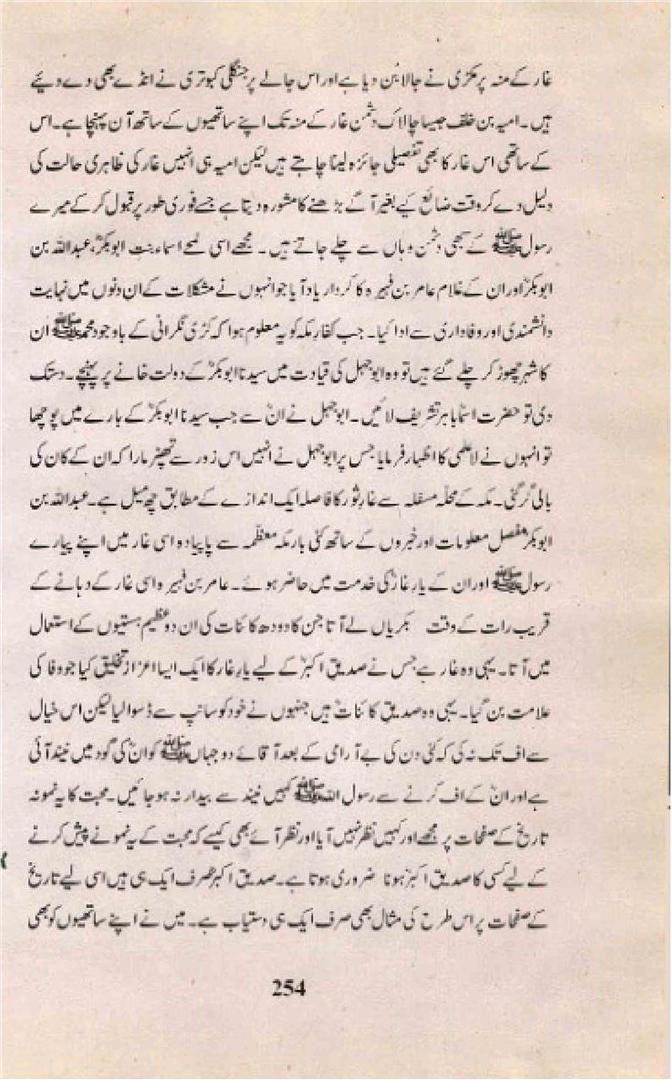 غار کے منہ پر مکڑی نے جالا بُن دیا ہے اور اس جالے پر جنگلی کبوتری نے انڈے بھی دے دیئے
ہیں۔ امیہ بن خلف جیسا چالاک دشمن غار کے منہ تک اپنے ساتھیوں کے ساتھ آن پہنچا ہے۔ اس
کے ساتھی اس غار کا بھی تفصیلی جائزہ لینا چاہتے ہیں لیکن امیہ ہی انہیں غار کی ظاہری حالت کی
دلیل دے کر وقت ضائع کیے بغیر آگے بڑھنے کا مشورہ دیتا ہے جسے فوری طور پر قبول کر کے میرے
رسولﷺ کے سبھی دشمن وہاں سے چلے جاتے ہیں۔ مجھے اسی لمحے اسماء بنتِ ابوبکرؓ، عبداللہ بن
ابوبکرؓ اور ان کے غلام عامر بن فہیرہ کا کردار یاد آیا جو انہوں نے مشکلات کے ان دنوں میں نہایت
دانشمندی اور وفاداری سے ادا کیا۔ جب کفارِ مکہ کو یہ معلوم ہوا کہ کڑی نگرانی کے باوجود محمدﷺ اُن
کا شہر چھوڑ کر چلے گئے ہیں تو وہ ابوجہل کی قیادت میں سیدنا ابوبکرؓ کے دولت خانے پر پہنچے۔ دستک
دی تو حضرت اسماؓ باہر تشریف لائیں۔ ابوجہل نے انؓ سے جب سیدنا ابوبکرؓ کے بارے میں پوچھا
تو انہوں نے لاعلمی کا اظہار فرمایا جس پر ابوجہل نے انہیں اس زور سے تھپڑ مارا کہ ان کے کان کی
بالی گر گئی۔ مکہ کے محلّہ مسفلہ سے غارِ ثور کا فاصلہ ایک اندازے کے مطابق چھ میل ہے۔ عبداللہ بن
ابوبکرؓ مفصل معلومات اور خبروں کے ساتھ کئی بار مکہ معظّمہ سے پاپیادہ اسی غار میں اپنے پیارے
رسولﷺ اور ان کے یارِ غارؓ کی خدمت میں حاضر ہوئے۔ عامر بن فہیرہ اسی غار کے دہانے کے
قریب رات کے وقت بکریاں لے آتا جن کا دودھ کائنات کی ان دو عظیم ہستیوں کے استعمال
میں آتا۔ یہی وہ غار ہے جس نے صدیق اکبرؓ کے لیے یارِ غار کا ایک ایسا اعزاز تخلیق کیا جو وفا کی
علامت بن گیا۔ یہی وہ صدیق کائناتؓ ہیں جنہوں نے خود کو سانپ سے ڈسوا لیا لیکن اس خیال
سے اف تک نہ کی کہ کئی دن کی بے آرامی کے بعد آقائے دو جہاںﷺ کو انؓ کی گود میں نیند آئی
ہے اور انؓ کے اف کرنے سے رسول اللہﷺ کہیں نیند سے بیدار نہ ہو جائیں۔ محبت کا یہ نمونہ
تاریخ کے صفحات پر مجھے اور کہیں نظر نہیں آیا اور نظر آئے بھی کیسے کہ محبت کے یہ نمونے پیش کرنے
کے لیے کسی کا صدیق اکبرؓ ہونا ضروری ہوتا ہے۔ صدیق اکبرؓ صرف ایک ہی ہیں اسی لیے تاریخ
کے صفحات پر اس طرح کی مثال بھی صرف ایک ہی دستیاب ہے۔ میں نے اپنے ساتھیوں کو بھی
254